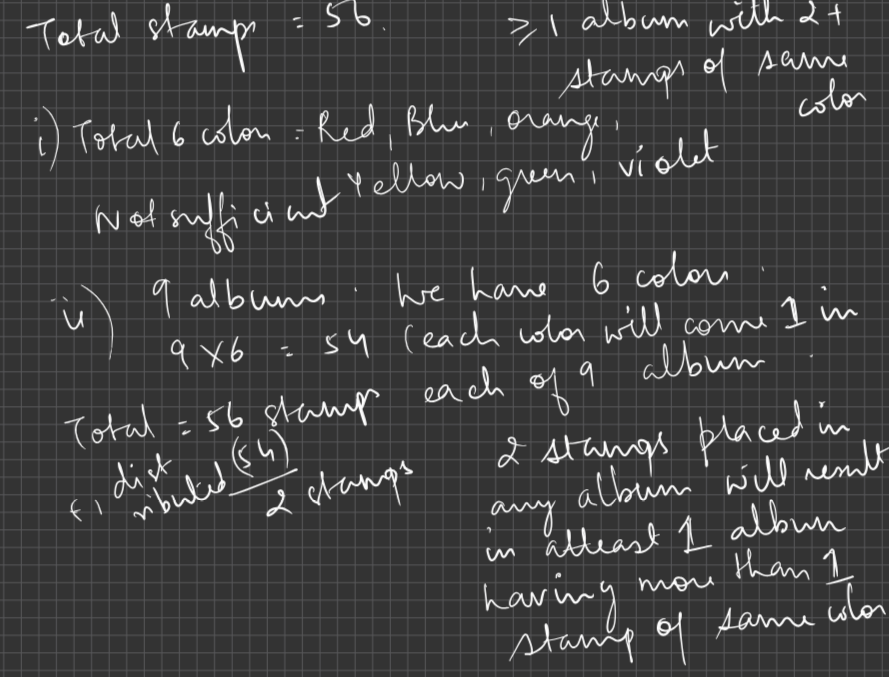 Total stamps = 56.
≥ 1 album with 2+
stamps of same
color
i) Total 6 colors = Red, Blue, orange,
Yellow, green, violet
Not sufficient
ii) 9 albums. We have 6 colors.
9 X 6 = 54 (each color will come 1 in
each of 9 album.
Total = 56 stamps
(-) distributed (54)
2 stamps
2 stamps placed in
any album will result
in atleast 1 album
having more than 1
stamp of same color